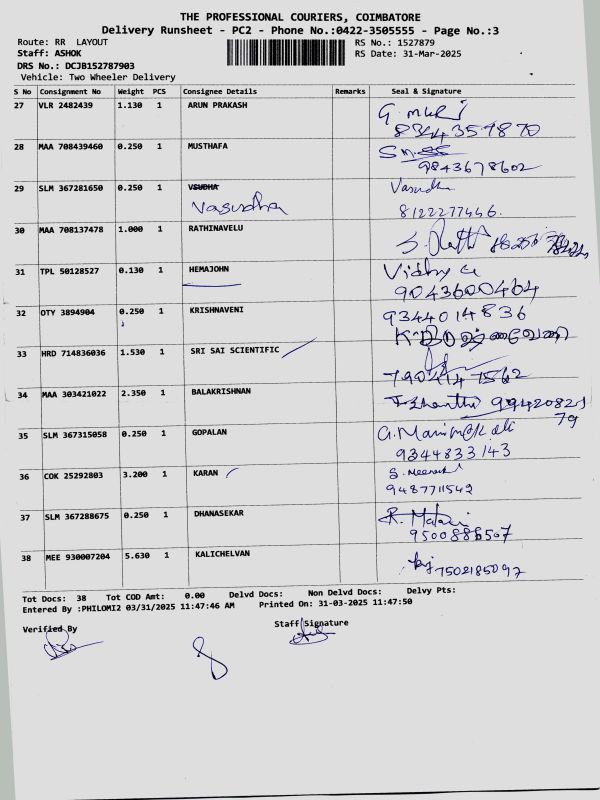 THE PROFESSIONAL COURIERS, COIMBATORE
Delivery Runsheet - PC2 - Phone No.:0422-3505555 - Page No.:3
Route: RR LAYOUT RS No.: 1527879
Staff: ASHOK RS Date: 31-Mar-2025
DRS No.: DCJB152787903
Vehicle: Two Wheeler Delivery
S No Consignment No Weight PCS Consignee Details Remarks Seal & Signature
27 VLR 2482439 1.130 1 ARUN PRAKASH
8344359870
28 MAA 708439460 0.250 1 MUSTHAFA
9843678602
29 SLM 367281650 0.250 1 VSUDHA Vasudha
Vasudha 8122277446.
30 MAA 708137478 1.000 1 RATHINAVELU
31 TPL 50128527 0.130 1 HEMAJOHN Vidhya
9043600464
32 OTY 3894904 0.250 1 KRISHNAVENI 9344014836
33 HRD 714836036 1.530 1 SRI SAI SCIENTIFIC
7904141562
34 MAA 303421022 2.350 1 BALAKRISHNAN
79
35 SLM 367315058 0.250 1 GOPALAN
9344833143
36 COK 25292803 3.200 1 KARAN
9487711542
37 SLM 367288675 0.250 1 DHANASEKAR
9500886507
38 MEE 930007204 5.630 1 KALICHELVAN
7502185097
Tot Docs: 38 Tot COD Amt: 0.00 Delvd Docs: Non Delvd Docs: Delvy Pts:
Entered By :PHILOMI2 03/31/2025 11:47:46 AM Printed On: 31-03-2025 11:47:50
Verified By Staff Signature